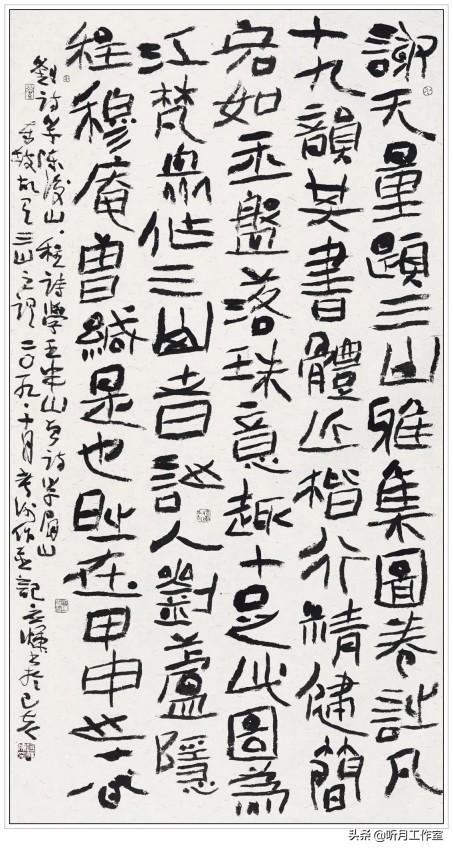 謝天量題三山雅集圖卷計凡
十九韻其書體近楷行精健簡
宕如玉盤落珠意趣十足此圖為
江梵眾作三山者詩人劉蘆隱
程穆庵曾緘是也時在甲申春
劉詩學陳後山，程詩學王半山，曾詩學眉山
故有三山之謂 二〇一九·十月 并記 於己亥
头条 @听月工作室